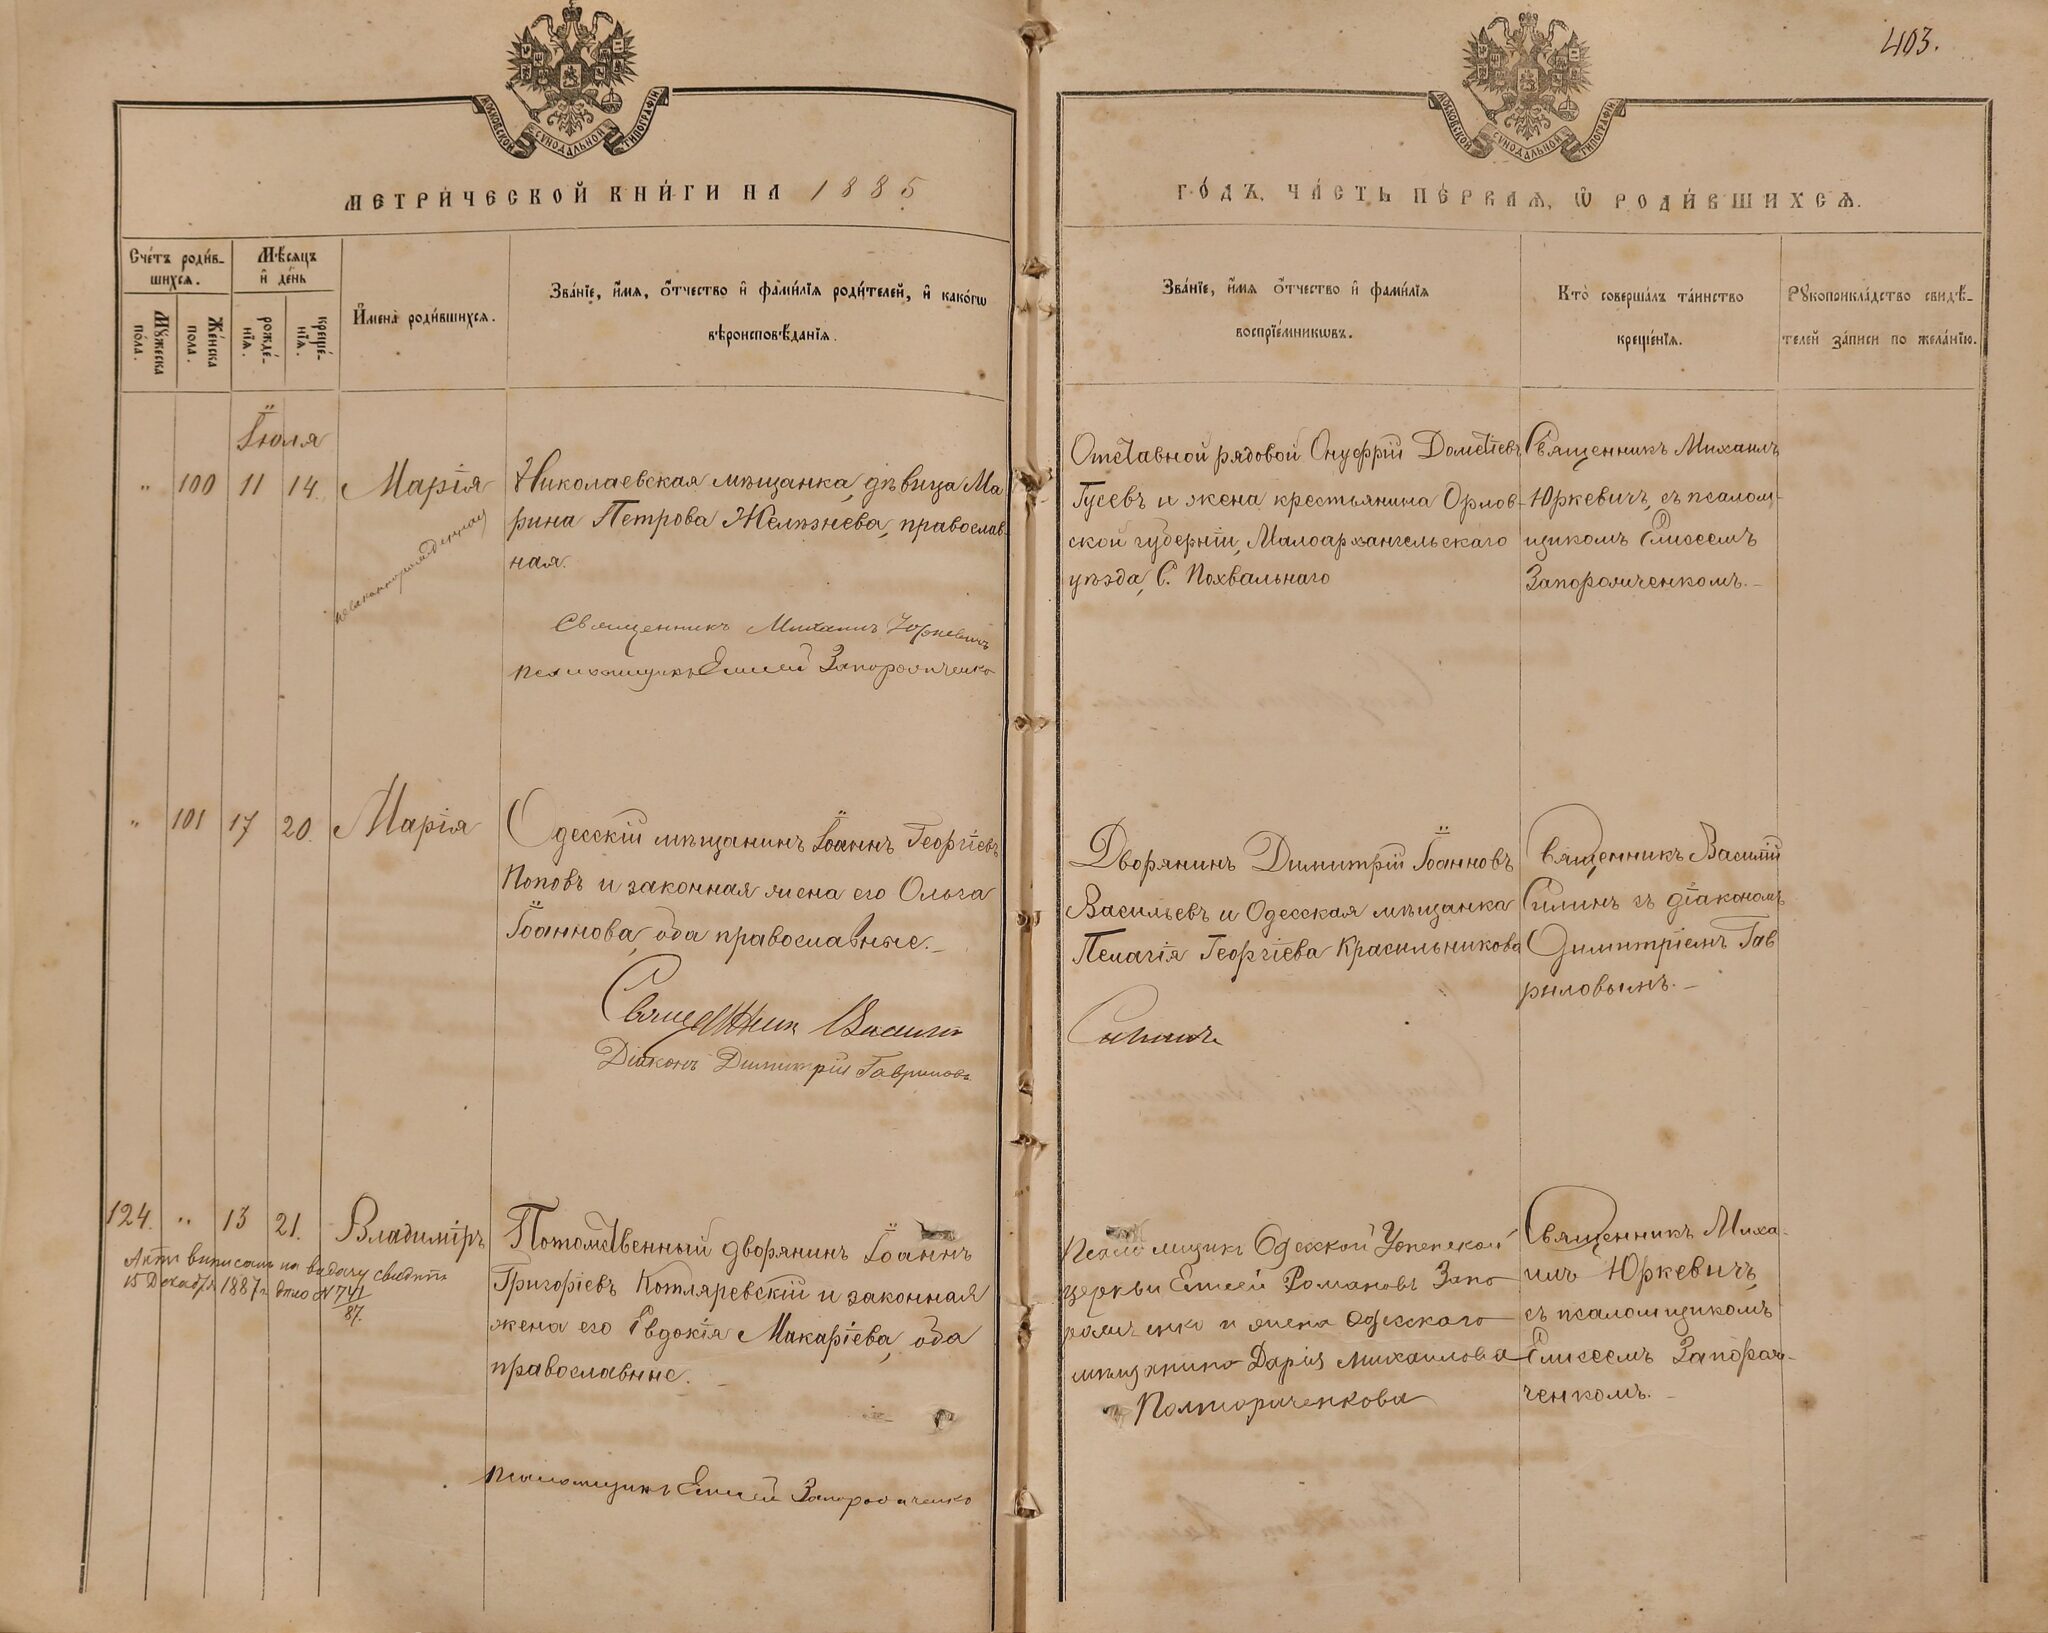 403.
МОСКОВСКОЙ СѴНОДАЛЬНОЙ ТИПОГРАФІИ
МОСКОВСКОЙ СѴНОДАЛЬНОЙ ТИПОГРАФІИ
МЕТРИ́ЧЕСКОЙ КНИ́ГИ НА 1885
ГО́ДЪ, ЧА́СТЬ ПЕ́РВАѦ, Ѡ҆ РОДИ́ВШИХСѦ.
Сче́тъ роди́в-
шихсѧ.
Мꙋ́жеска
по́ла.
Же́нска
по́ла.
Мѣ́сѧцъ
и҆ де́нь
рожде́-
нїѧ.
креще́-
нїѧ.
И҆мена̀ роди́вшихсѧ.
Зва́нїе, и҆́мѧ, ѻ҆́тчество и҆ фами́лїѧ роди́телей, и҆ како́гѡ
вѣроисповѣ́данїѧ.
Зва́нїе, и҆́мѧ ѻ҆́тчество и҆ фами́лїѧ
воспрїе́мникѡвъ.
Кто̀ соверша́лъ та́инство
креще́нїѧ.
Рꙋкоприкла́дство свидѣ́-
телей за́писи по жела́нїю.
Іюля
" 100 11 14. Марія
незаконнорожденная
Николаевская мѣщанка, дѣвица Ма
рина Петрова Желѣзнева, православ-
ная.
Священникъ Михаилъ Юркевичъ
Псаломщикъ Елисей Запорожченко
Отставной рядовой Онуфрій Дометіевъ
Гусевъ и жена крестьянина Орлов-
ской губерніи, Малоархангельскаго
уѣзда, С. Похвальнаго
Священникъ Михаилъ
Юркевичъ, съ псалом-
щикомъ Елисеемъ
Запорожченкомъ.
" 101 17 20. Марія
Одесскій мѣщанинъ Іоаннъ Георгіевъ
Поповъ и законная жена его Ольга
Іоаннова, оба православные.
Священник Василій
Діаконъ Димитрій Гавриловъ
Дворянинъ Димитрій Іоанновъ
Васильевъ и Одесская мѣщанка
Пелагія Георгіева Красильникова
Силинъ
Священникъ Василій
Силинъ съ діакономъ
Димитріемъ Гав
риловымъ.
124. " 13 21. Владиміръ
Актъ выписанъ на выдачу свидѣт.
15 Декабря 1887 г. дѣло № 741
87.
Потомственный дворянинъ Іоаннъ
Григоріевъ Котляревскій и законная
жена его Евдокія Макаріева, оба
православные.
Псаломщикъ Елисей Запорожченко
Псаломщикъ Одесской Успенской
церкви Елисей Романовъ Запо
рожченко и жена Одесского
мѣщанина Дарія Михаилова
Полтораченкова
Священникъ Миха-
илъ Юркевичъ,
съ псаломщикомъ
Елисеемъ Запорож-
ченкомъ.